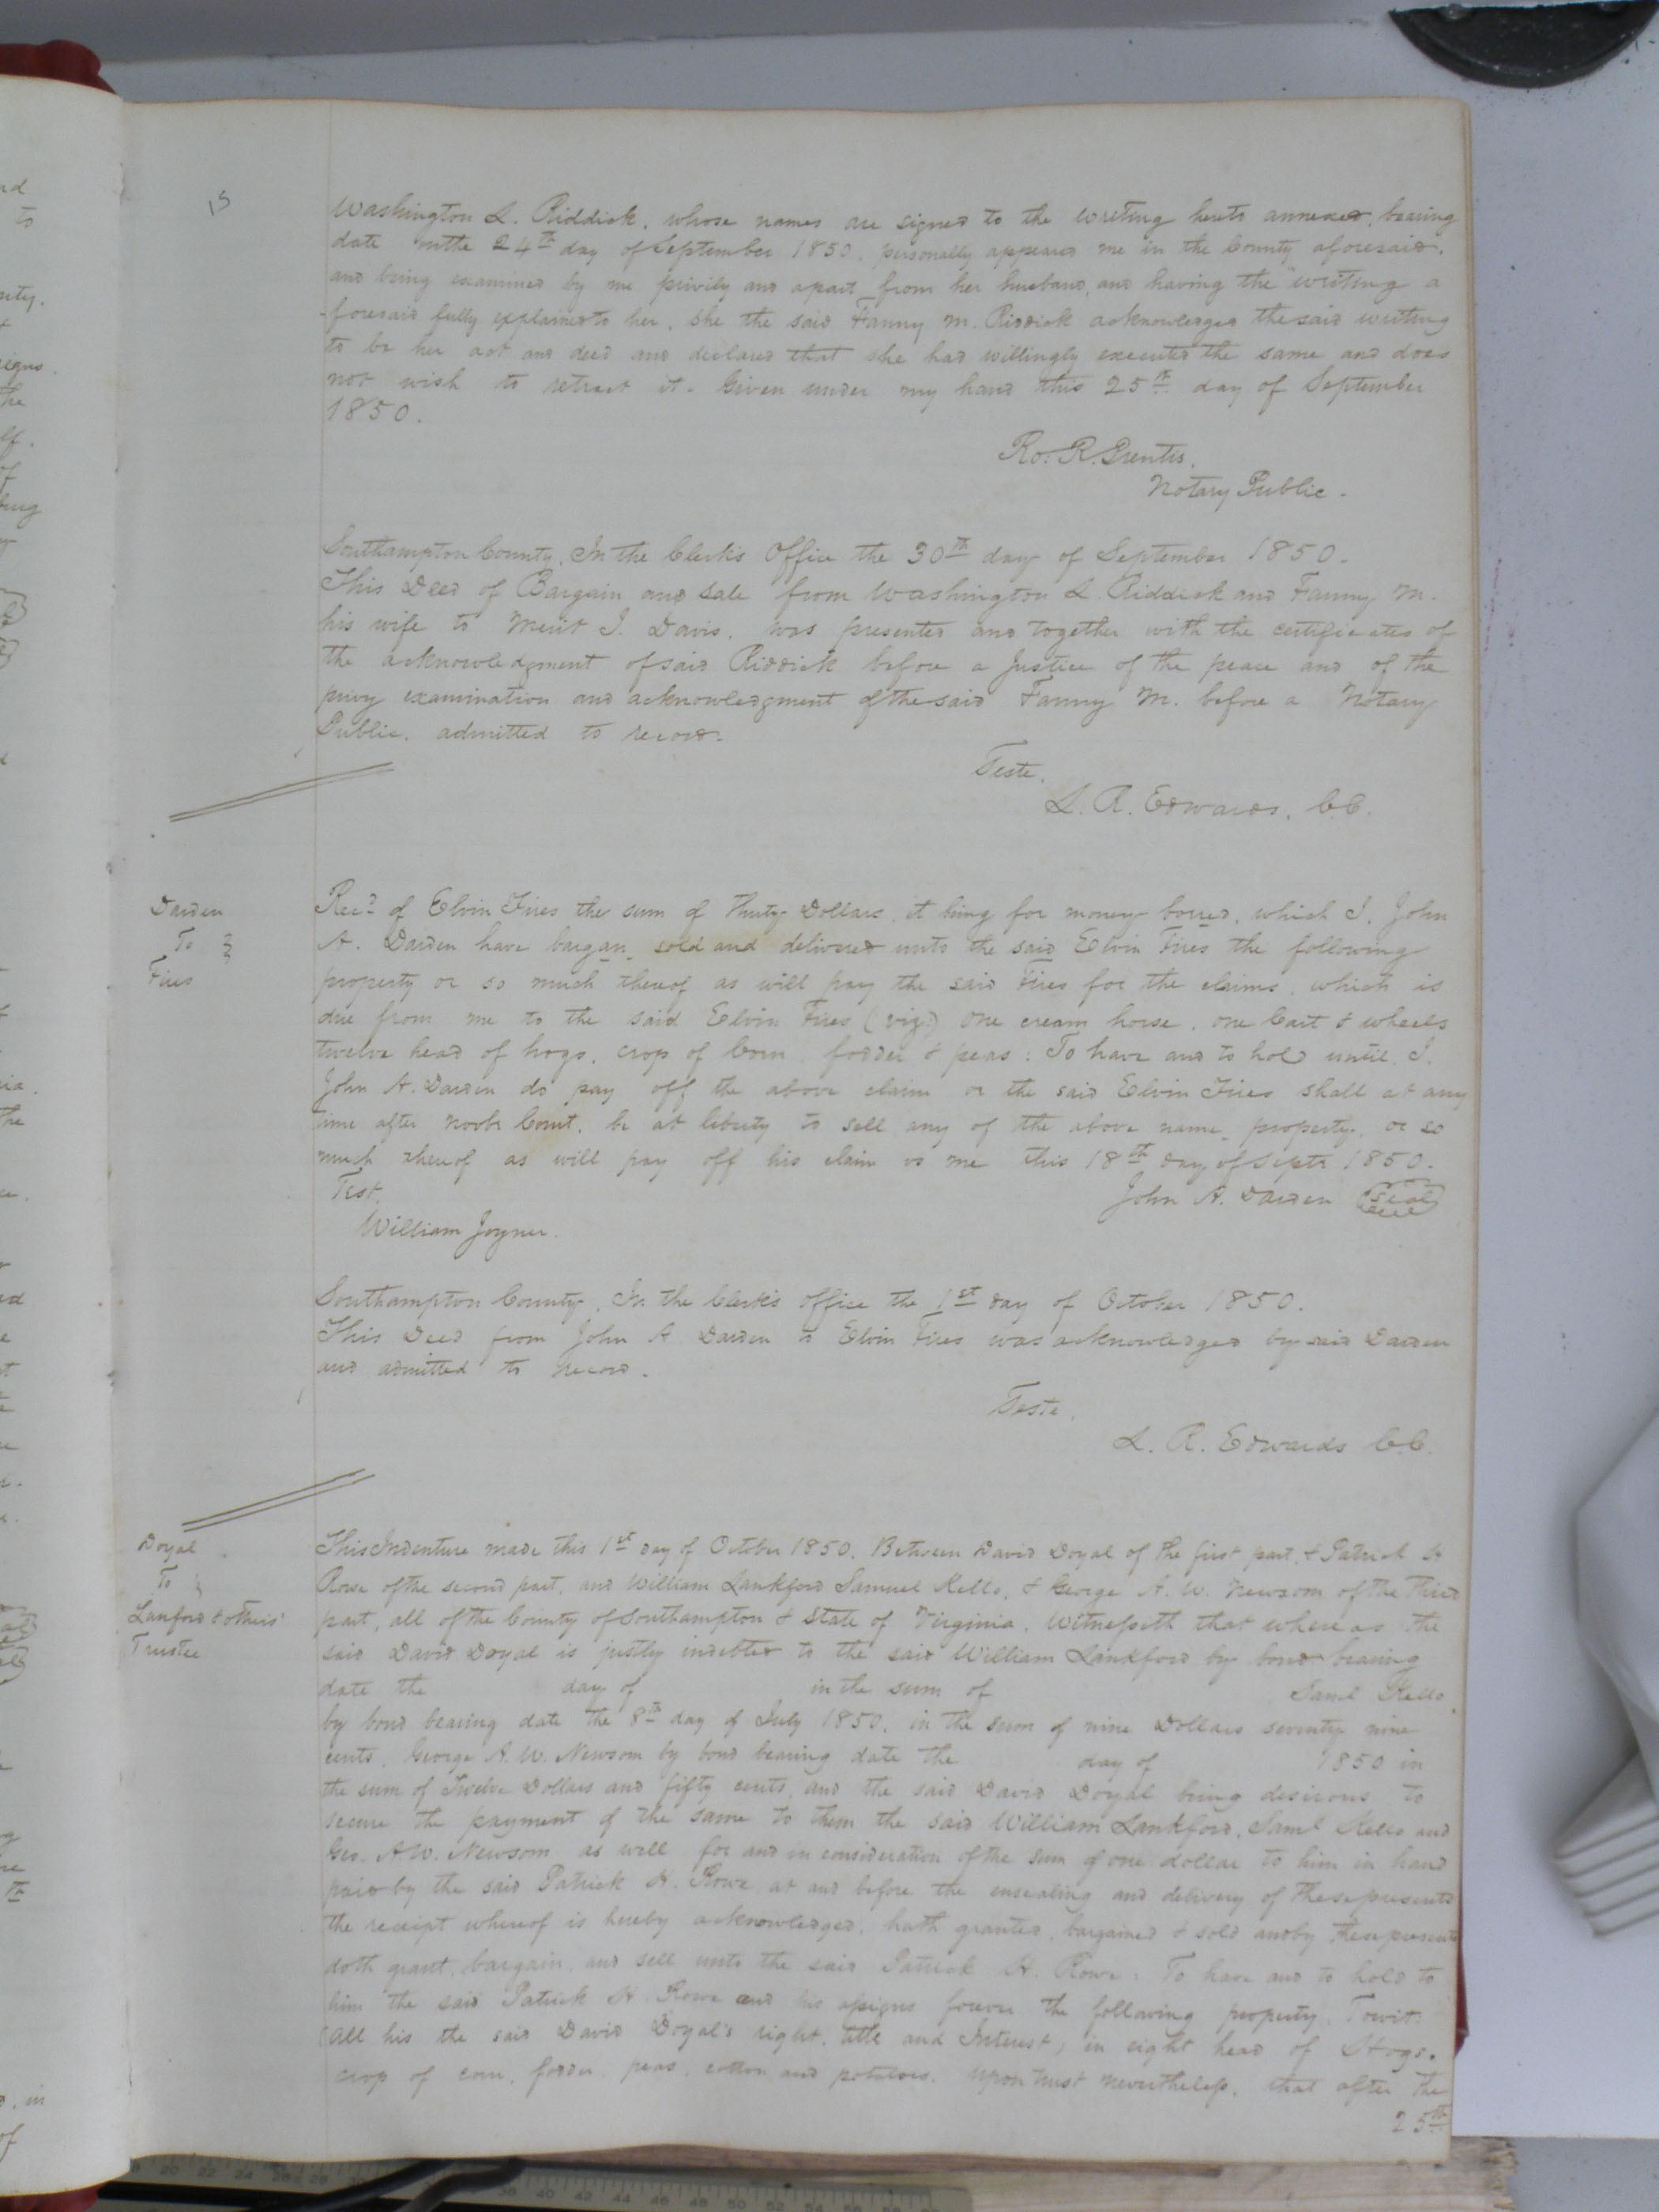 15
Washington L. Riddick, whose names are signed to the writing hereto annexed, bearing
date on the 24th day of September 1850, personally appeared me in the County aforesaid,
and being examined by me privily and apart from her husband, and having the writing a
-foresaid fully explained to her, she the said Fanny M. Riddick acknowledged the said writing
to be her act and deed and declared that she had willingly executed the same and does
not wish to retract it. Given under my hand this 25th day of September
1850.
Ro: R. Prentis,
Notary Public.
Southampton County, In the Clerk's Office the 30th day of September 1850.
This Deed of Bargain and sale from Washington L. Riddick and Fanny M.
his wife to Merit J. Davis, was presented and together with the certificates of
the acknowledgment of said Riddick before a Justice of the peace and of the
privy examination and acknowledgment of the said Fanny M. before a Notary
Public, admitted to record.
Teste,
L. R. Edwards, C.C.
Darden
To
Fires
Recd of Elvin Fires the sum of thirty Dollars, it being for money borred, which I, John
A. Darden have bargan sold and delivered unto the said Elvin Fires the following
property or so much thereof as will pay the said Fires for the claims, which is
due from me to the said Elvin Fires (viz:) One cream horse, one Cart & wheels
twelve head of hogs, crop of Corn, fodder & peas: To have and to hold until, I.
John A. Darden do pay off the above claim or the said Elvin Fires shall at any
time after Novbr Court, be at liberty to sell any of the above name property, or so
much thereof as will pay off his claim vs me this 18th day of Septr 1850.
Test.
John A. Darden (seal)
William Joyner.
Southampton County, In the Clerk's office the 1st day of October 1850.
This Deed from John A. Darden to Elvin Fires was acknowledged by said Darden
and admitted to record.
Teste,
L. R. Edwards C.C.
Doyal
To
Lanford & others'
Trustee
This Indenture made this 1st day of October 1850. Between David Doyal of the first part, & Patrick H
Rowe of the second part, and William Lankford Samuel Kello, & George A. W. Newsom of the third
part, all of the County of Southampton & State of Virginia, Witnesseth that where as the
said David Doyal is justly indebted to the said William Lankford by bond bearing
date the day of in the sum of Saml Kello
by bond bearing date the 8th day of July 1850, in the sum of nine Dollars seventy nine
cents, George A. W. Newsom by bond bearing date the day of 1850 in
the sum of Twelve Dollars and fifty cents, and the said David Doyal being desirous to
secure the payment of the same to them the said William Lankford, Saml Kello and
Geo. A W. Newsom as well for and in consideration of the sum of one dollar to him in hand
paid by the said Patrick H. Rowe, at and before the ensealing and delivery of these presents
the receipt whereof is hereby acknowledged, hath granted, bargained & sold and by these presents
doth grant, bargain, and sell unto the said Patrick H. Rowe: To have and to hold to
him the said Patrick H Rowe and his assigns forever the following property, Towit:
(all his the said David Doyal's right, title and Interest) in eight head of Hogs.
crop of corn, fodder, peas, cotton and potatoes. Upon trust nevertheless, that after the
25th